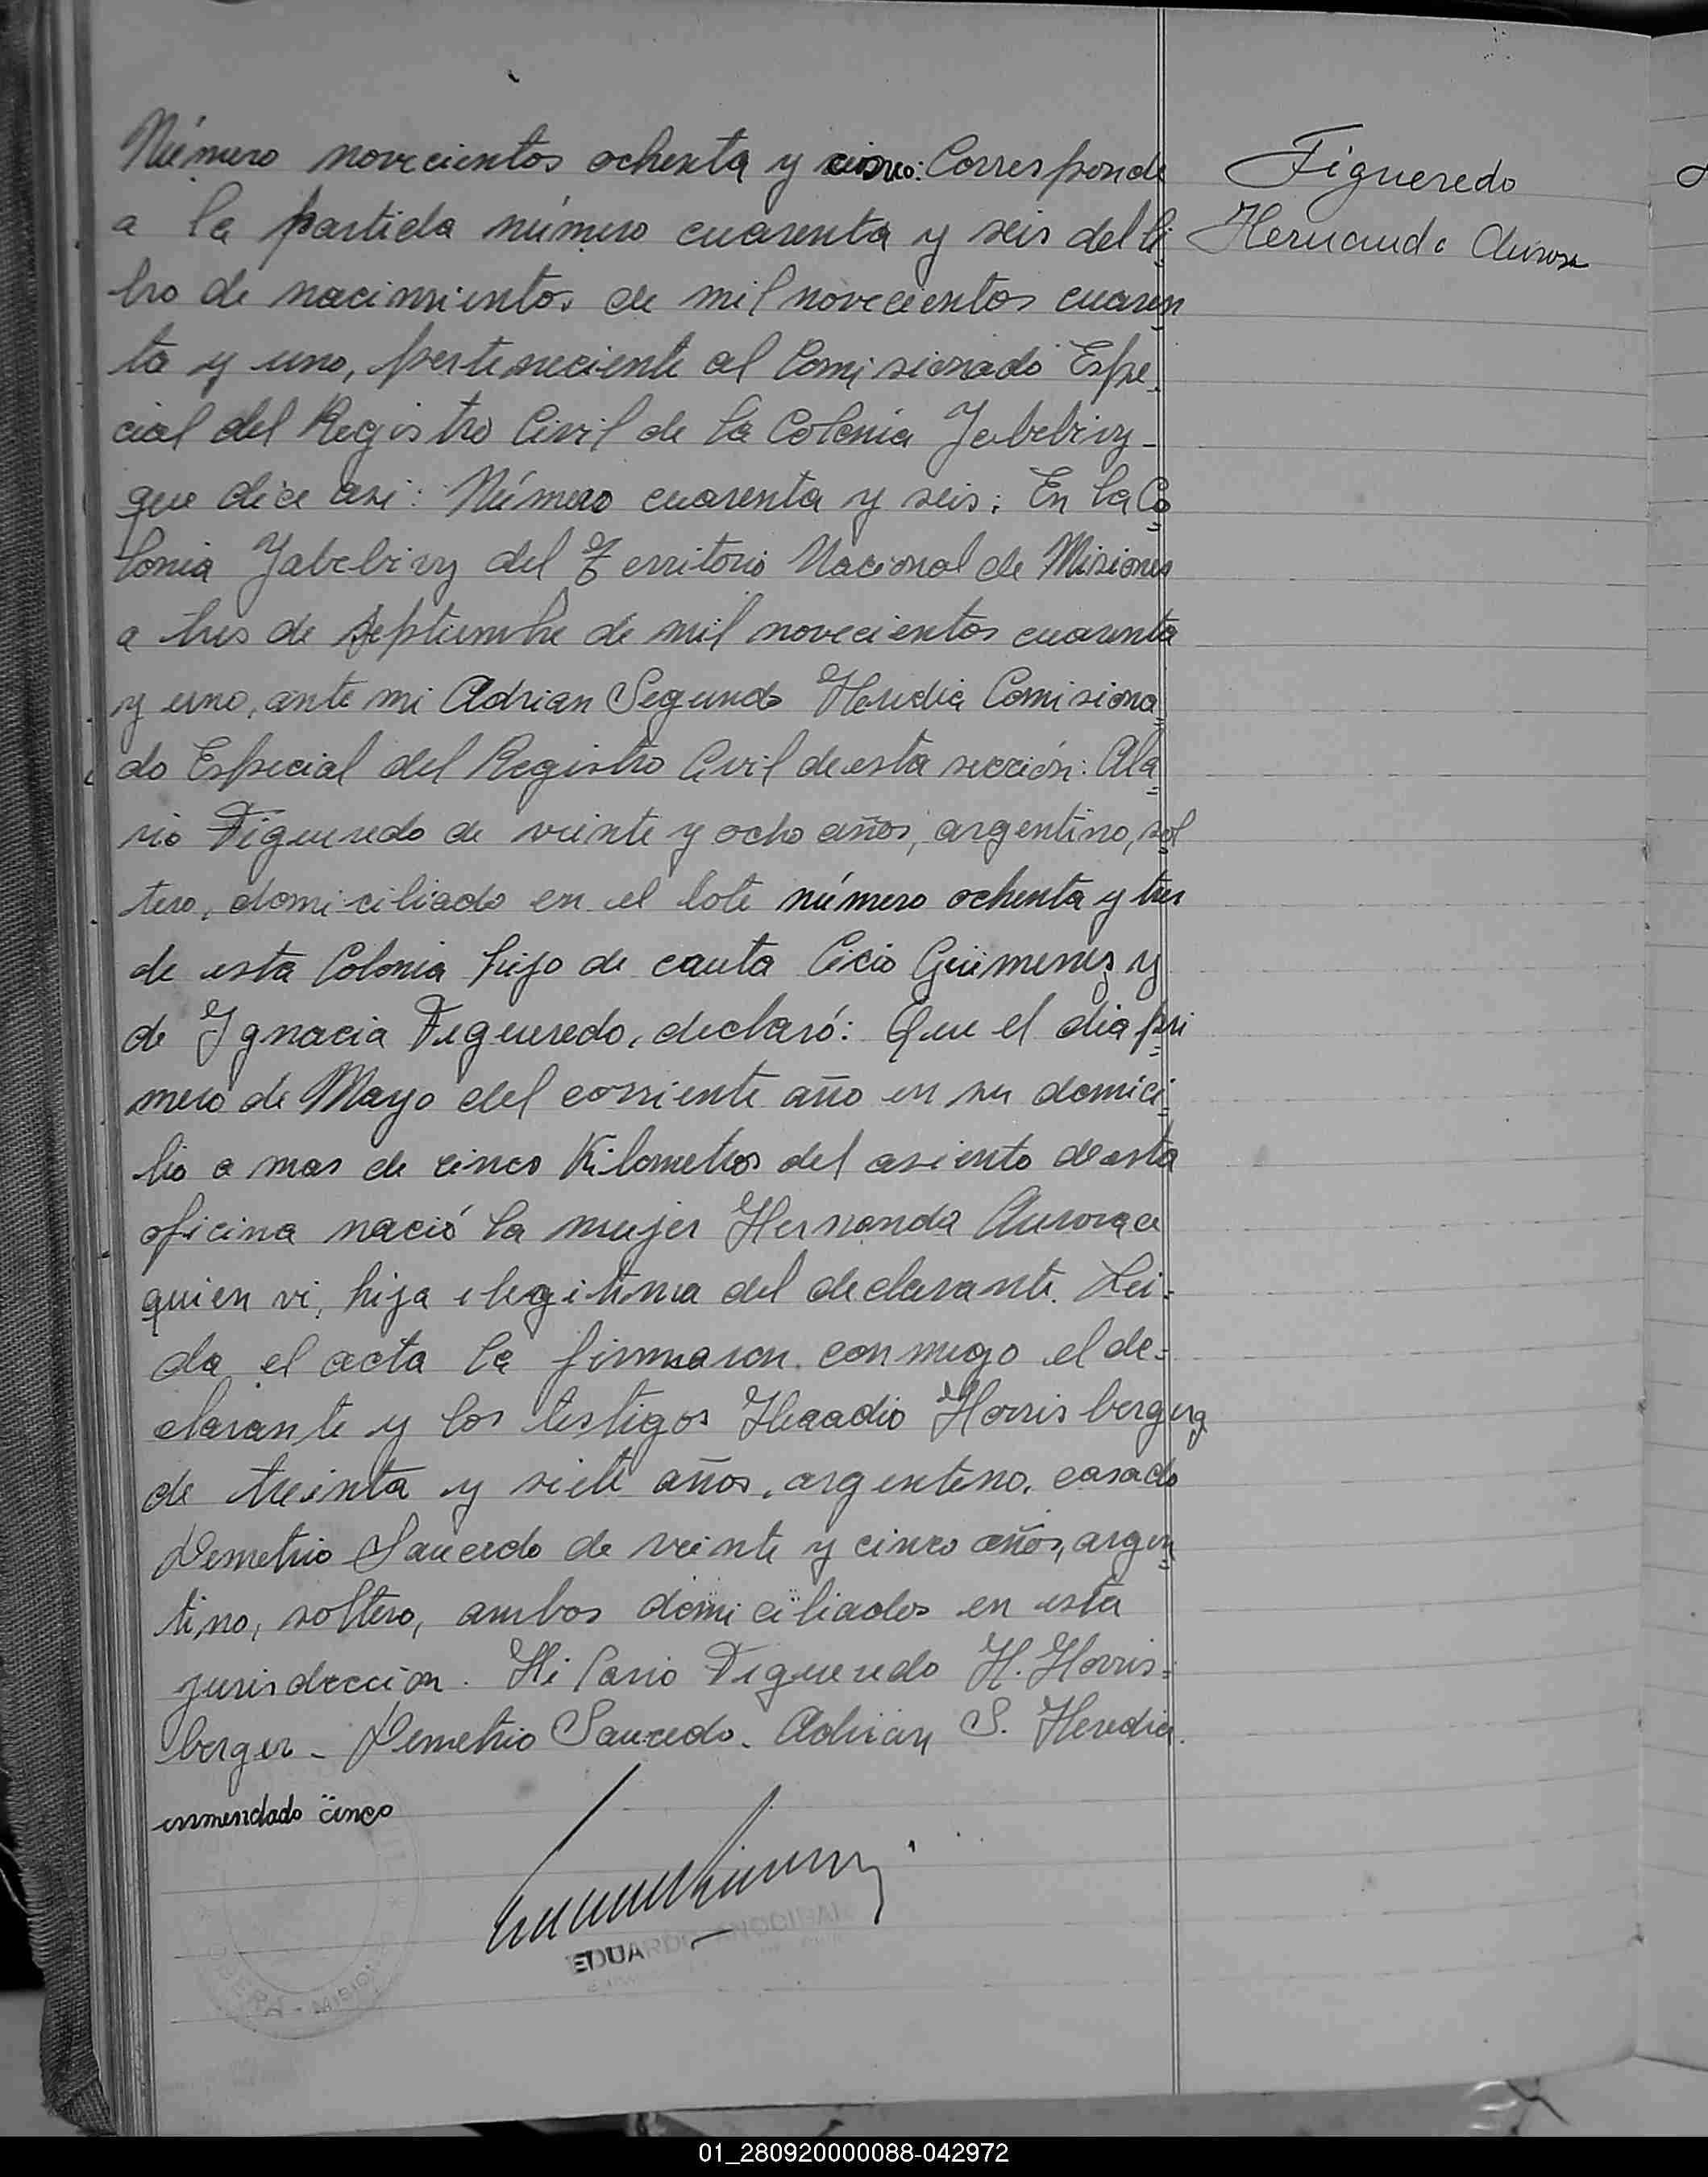 Número novecientos ochenta y cinco: Corresponde
a la partida número cuarenta y seis del li
bro de nacimientos de mil novecientos cuaren
ta y uno, perteneciente al Comisionado Espe
cial del Registro Civil de la Colonia Yabebiry
que dice asi: Número cuarenta y seis: En la Co
lonia Yabebiry del Territorio Nacional de Misiones
a tres de septiembre de mil novecientos cuarenta
y uno, ante mi Adrian Segundo Heredia Comisiona
do Especial del Registro Civil de esta sección: Ala
rio Figueredo de veinte y ocho años, argentino, sol
tero, domiciliado en el lote número ochenta y tres
de esta Colonia hijo de Güimenes y
de Ignacia Figueredo, declaró: Que el dia pri
mero de Mayo del corriente año en su domici
lio a mas de cinco Kilometros del asiento de esta
oficina nació la mujer Hernanda Aurora a
quien vi, hija ilegitima del declarante. Lei
da el acta la firmaron conmigo el de=
clarante y los testigos Horrisberger
de treinta y siete años, argentino, casado
Demetrio Saucedo de veinte y cinco años, argen
tino, soltero, ambos domiciliados en esta
jurisdiccion. Hilario Figueredo H. Horris=
berger - Demetrio Saucedo. Adrian S. Heredia.
enmendado cinco
EDUARDO
OBERA - MISIONES
Figueredo
Hernanda Aurora
01_280920000088-042972